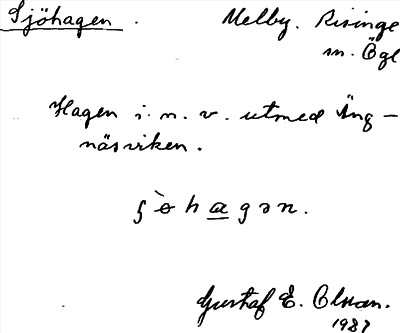 Sjöhagen. Melby. Risinge
sn. Ögl
Hagen i. n. v. utmed Äng-
näsviken.
ʃö̀hagən.
Gustaf E. Olsson.
1927